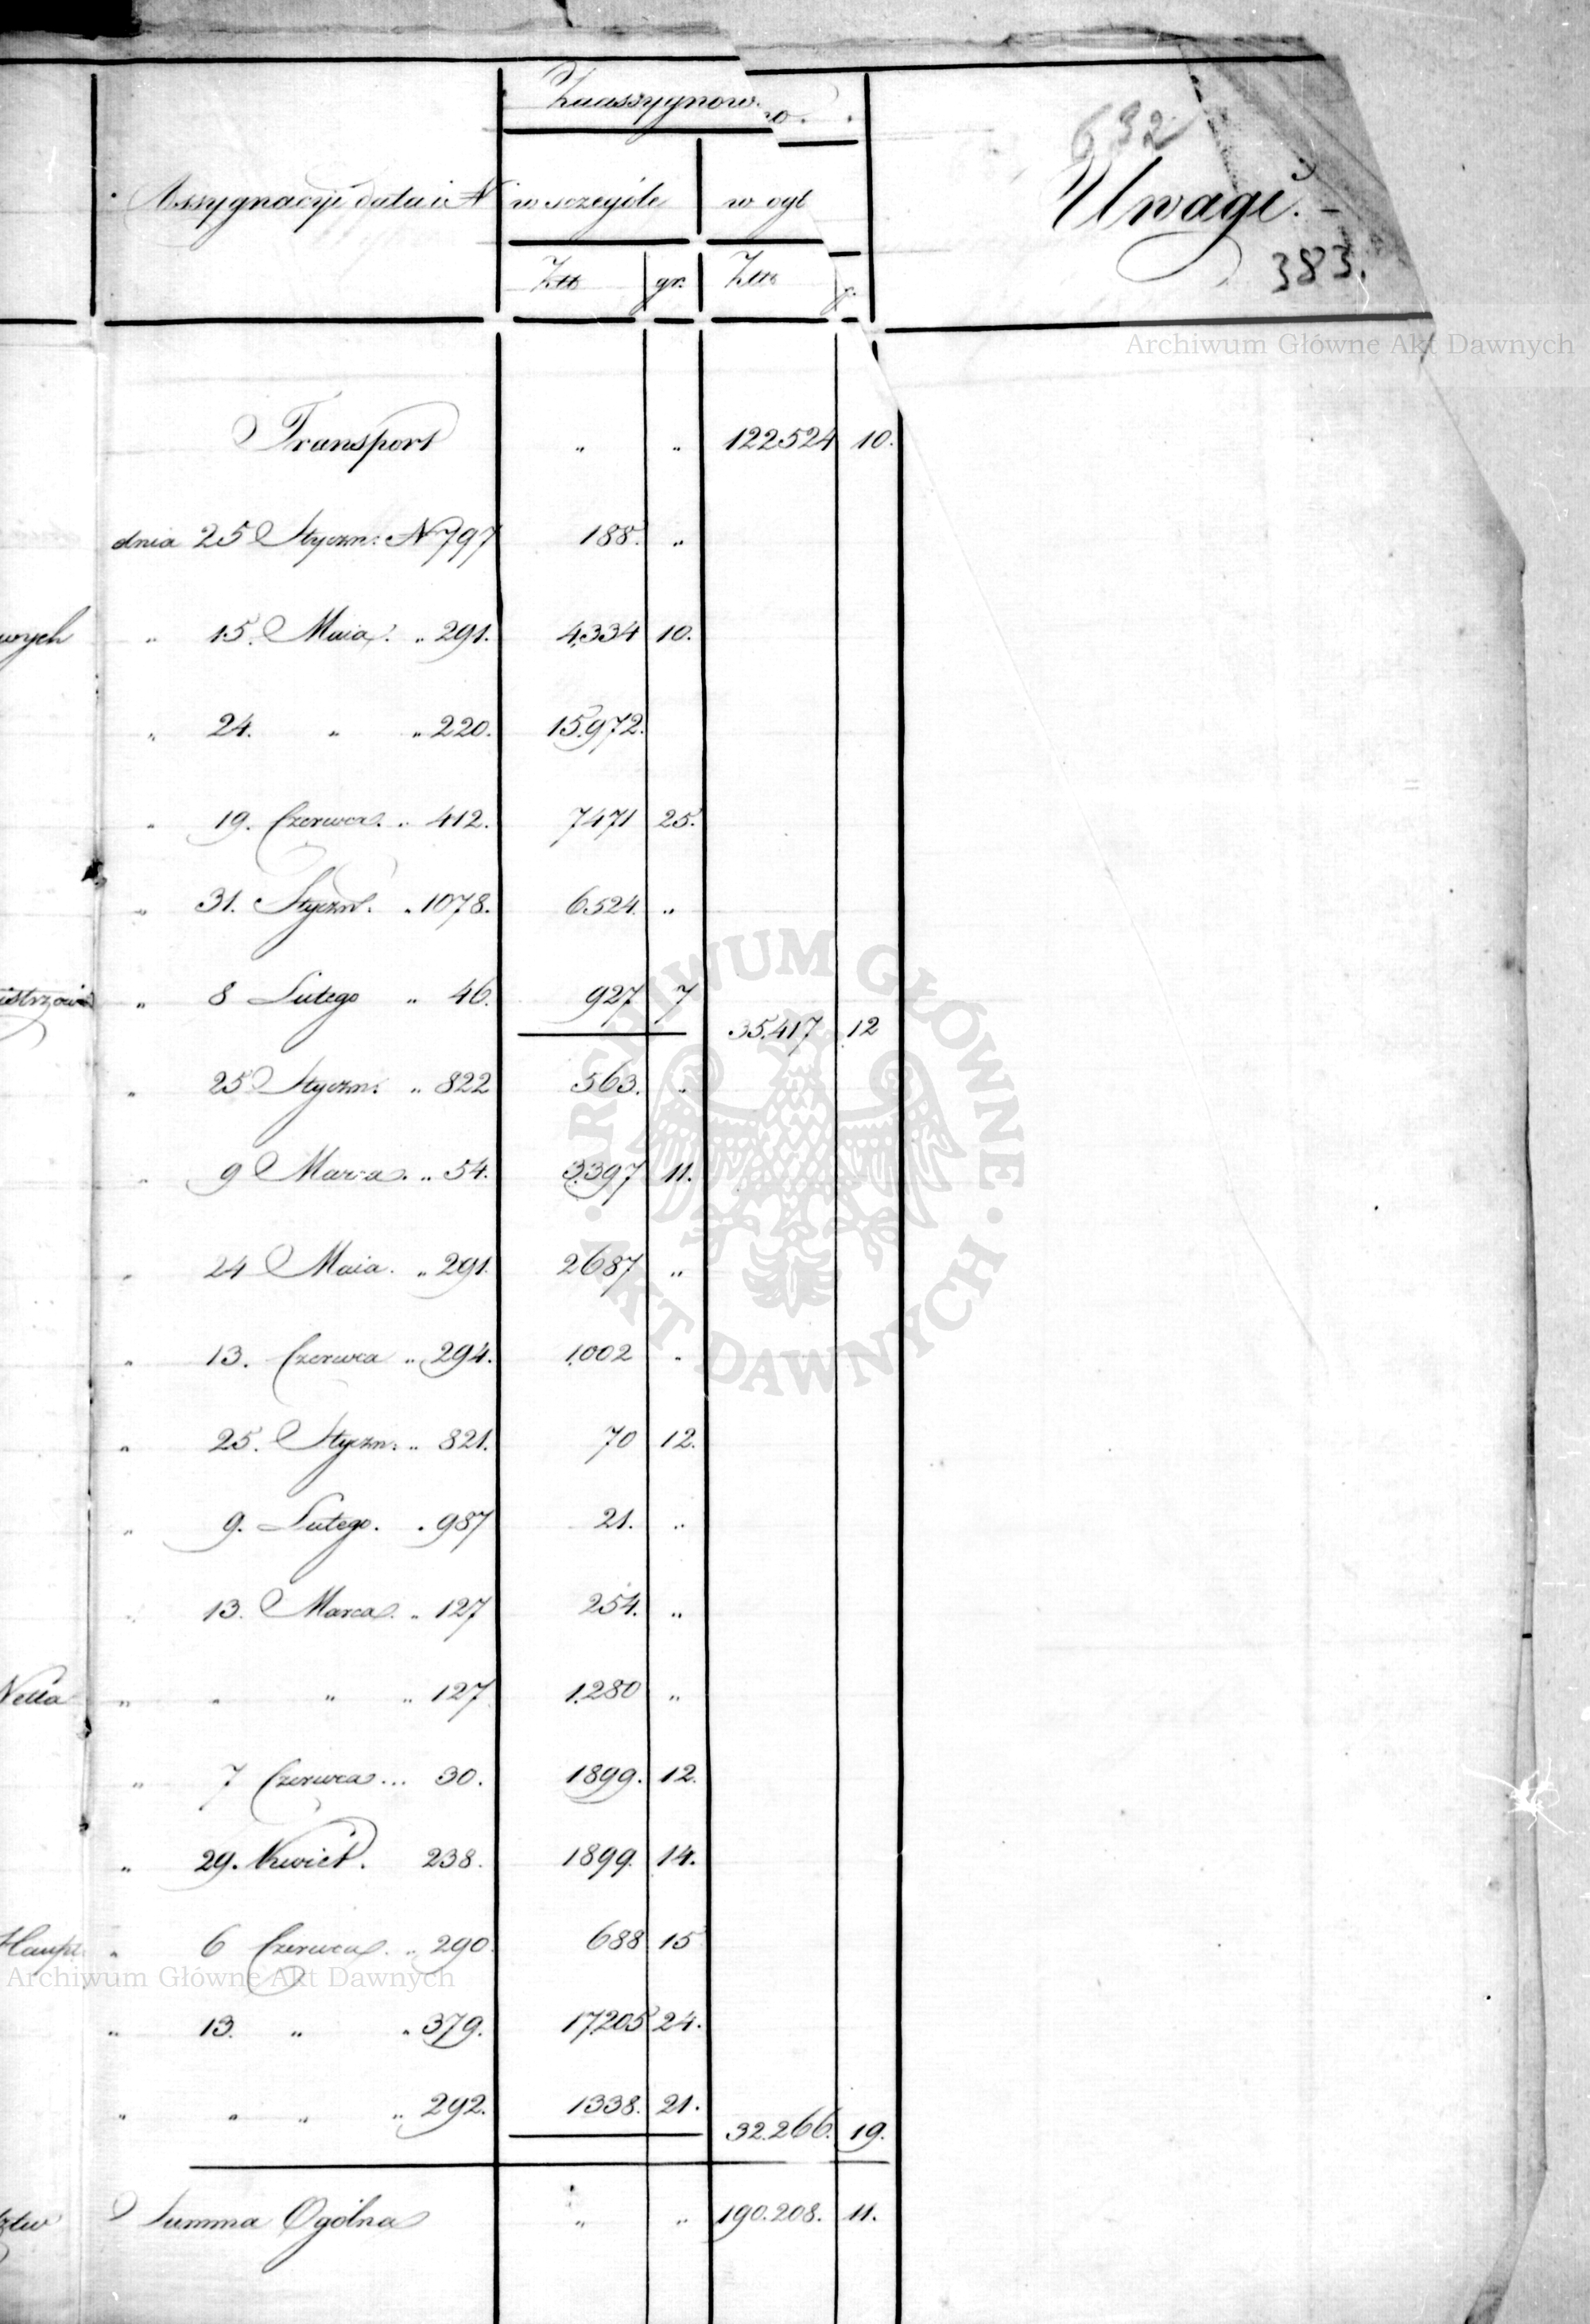 Zaassygnow
no.
632
Assygnacyi data i N
w szczególe
w ogł
Uwagi.
383.
Złt
gr.
Złt
g.
Archiwum Główne Akt Dawnych
Transport " " 122524 10.
dnia 25 Styczn: N 797 188. "
wych " 15. Maia. " 291. 4,334 10.
" 24. " " 220. 15.972.
" 19. Czerwca. " 412. 7471 25.
" 31. Styczn. " 1078. 6524. "
" 8 Lutego " 46. 927 7
35.417 12
" 25 Styczn: " 822 563. "
" 9 Marca. " 54. 3.397 11.
" 24 Maia. " 291. 2687 "
" 13. Czerwca " 294. 1.002 "
" 25. Styczn: " 821. 70 12.
" 9. Lutego. " 987 21. "
" 13. Marca. " 127 254. "
" " " " 127 1.280 "
" 7 Czerwca... 30. 1899. 12.
" 29. Kwiet. 238. 1899. 14.
Haupt " 6 Czerwca. " 290. 688 15
Archiwum Główne Akt Dawnych
" 13. " " 379. 17.205 24.
" " " " 292. 1338. 21.
32.266. 19.
Summa Ogólna " " 190.208. 11.
ARCHIWUM GŁÓWNE · AKT DAWNYCH ·